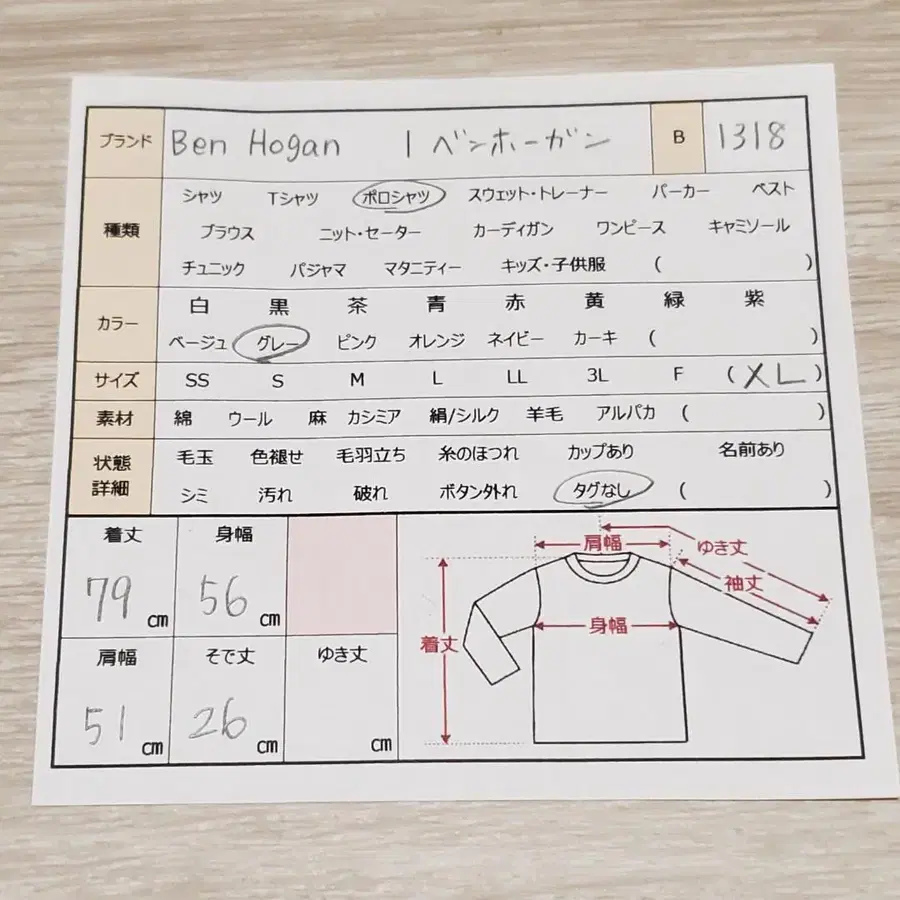 ブランド Ben Hogan | ベンホーガン B 1318
種類 シャツ Tシャツ ポロシャツ スウェット・トレーナー パーカー ベスト
ブラウス ニット・セーター カーディガン ワンピース キャミソール
チュニック パジャマ マタニティー キッズ・子供服 ( )
カラー 白 黒 茶 青 赤 黄 緑 紫
ベージュ グレー ピンク オレンジ ネイビー カーキ ( )
サイズ SS S M L LL 3L F (XL)
素材 綿 ウール 麻 カシミア 絹/シルク 羊毛 アルパカ ( )
状態 毛玉 色褪せ 毛羽立ち 糸のほつれ カップあり 名前あり
詳細 シミ 汚れ 破れ ボタン外れ タグなし ( )
着丈 身幅
79 cm 56 cm
肩幅 そで丈 ゆき丈
51 cm 26 cm cm
肩幅 ゆき丈
袖丈
身幅
着丈